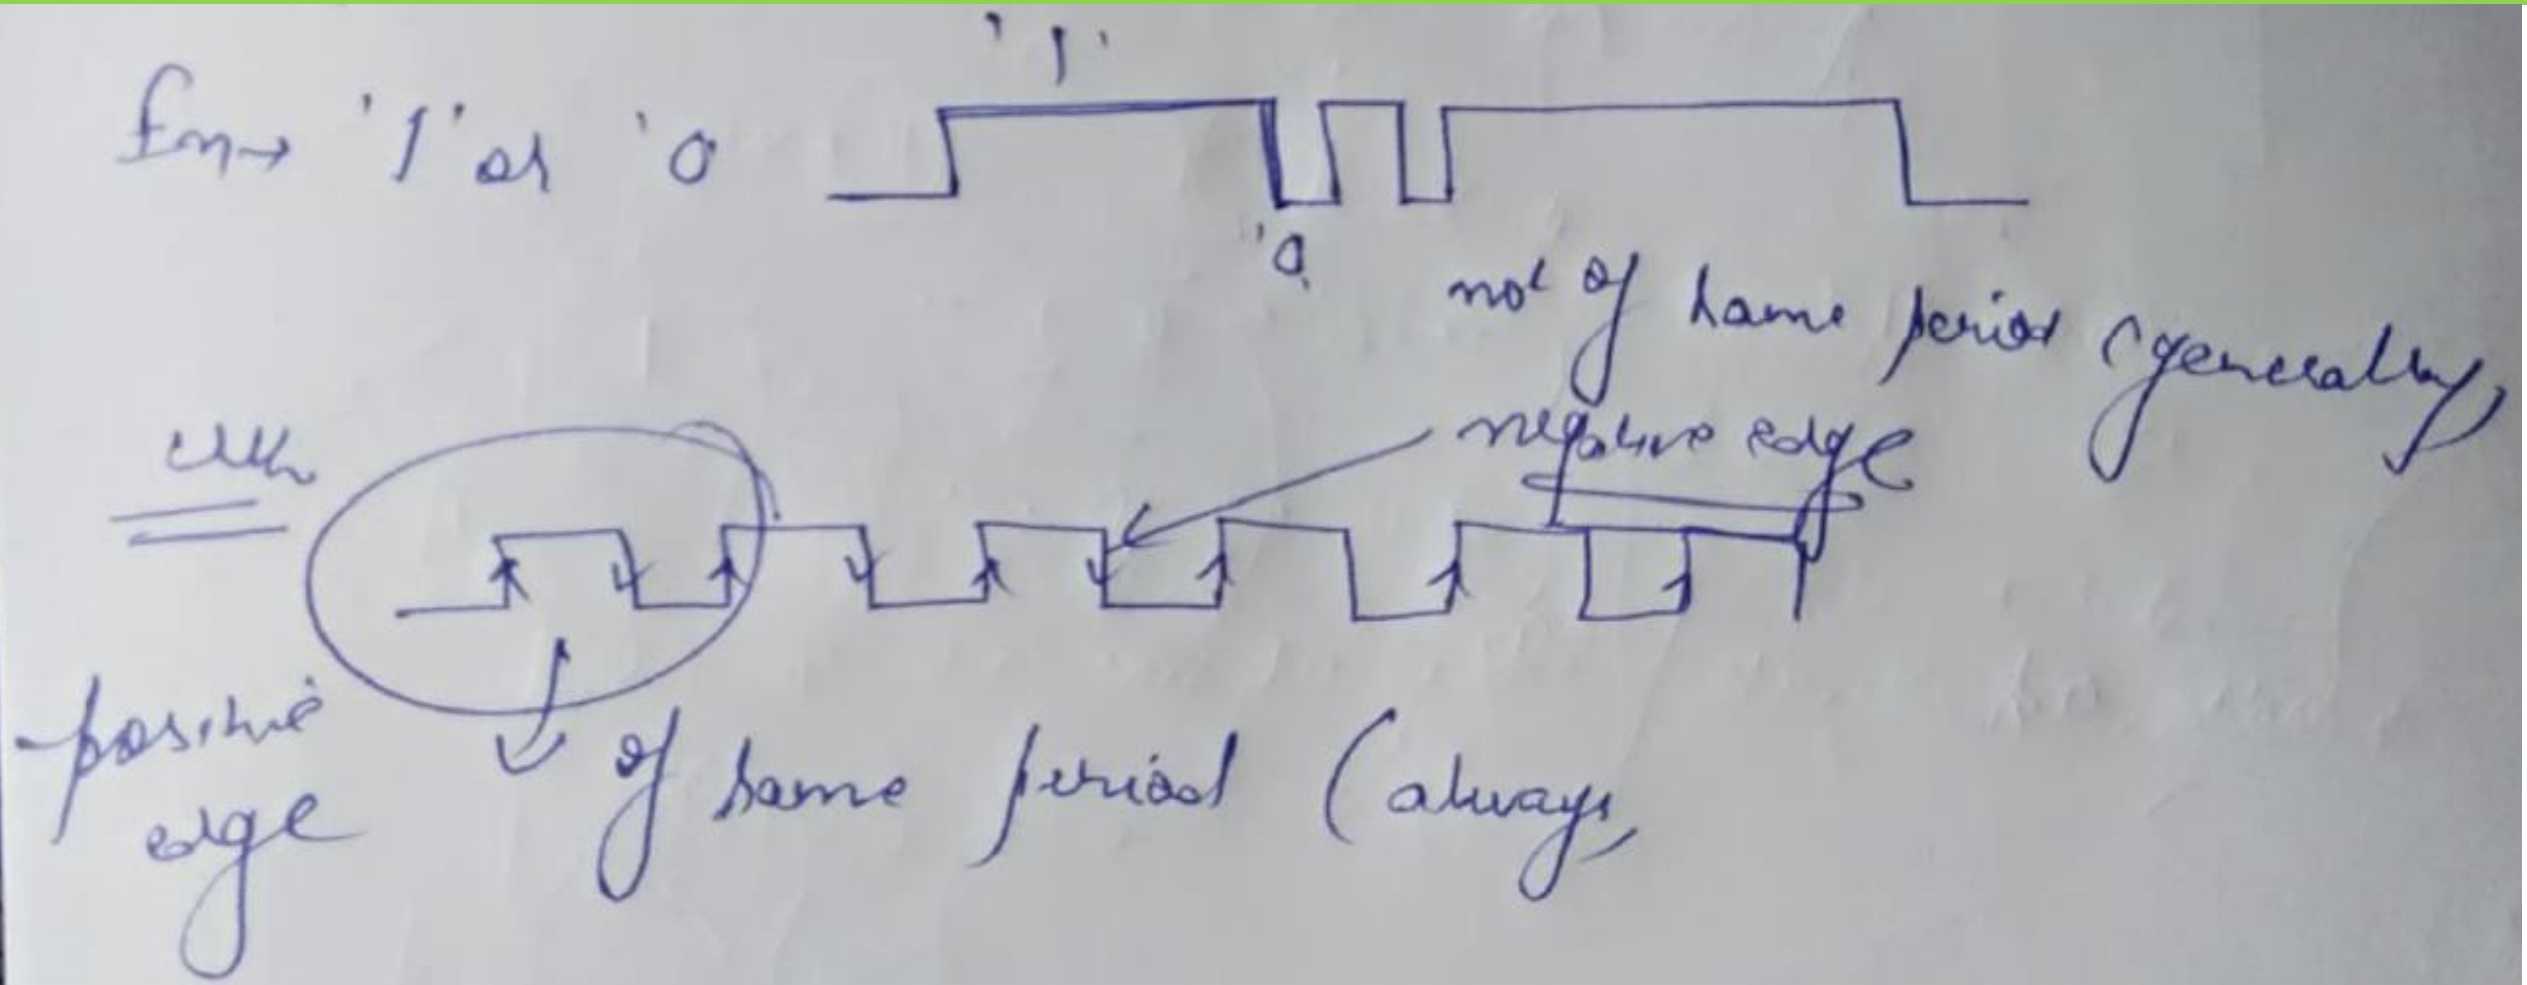 '1'
En→ '1' or '0
'0
not of same period (generally)
clk
negative edge
positive
edge
of same period (always)